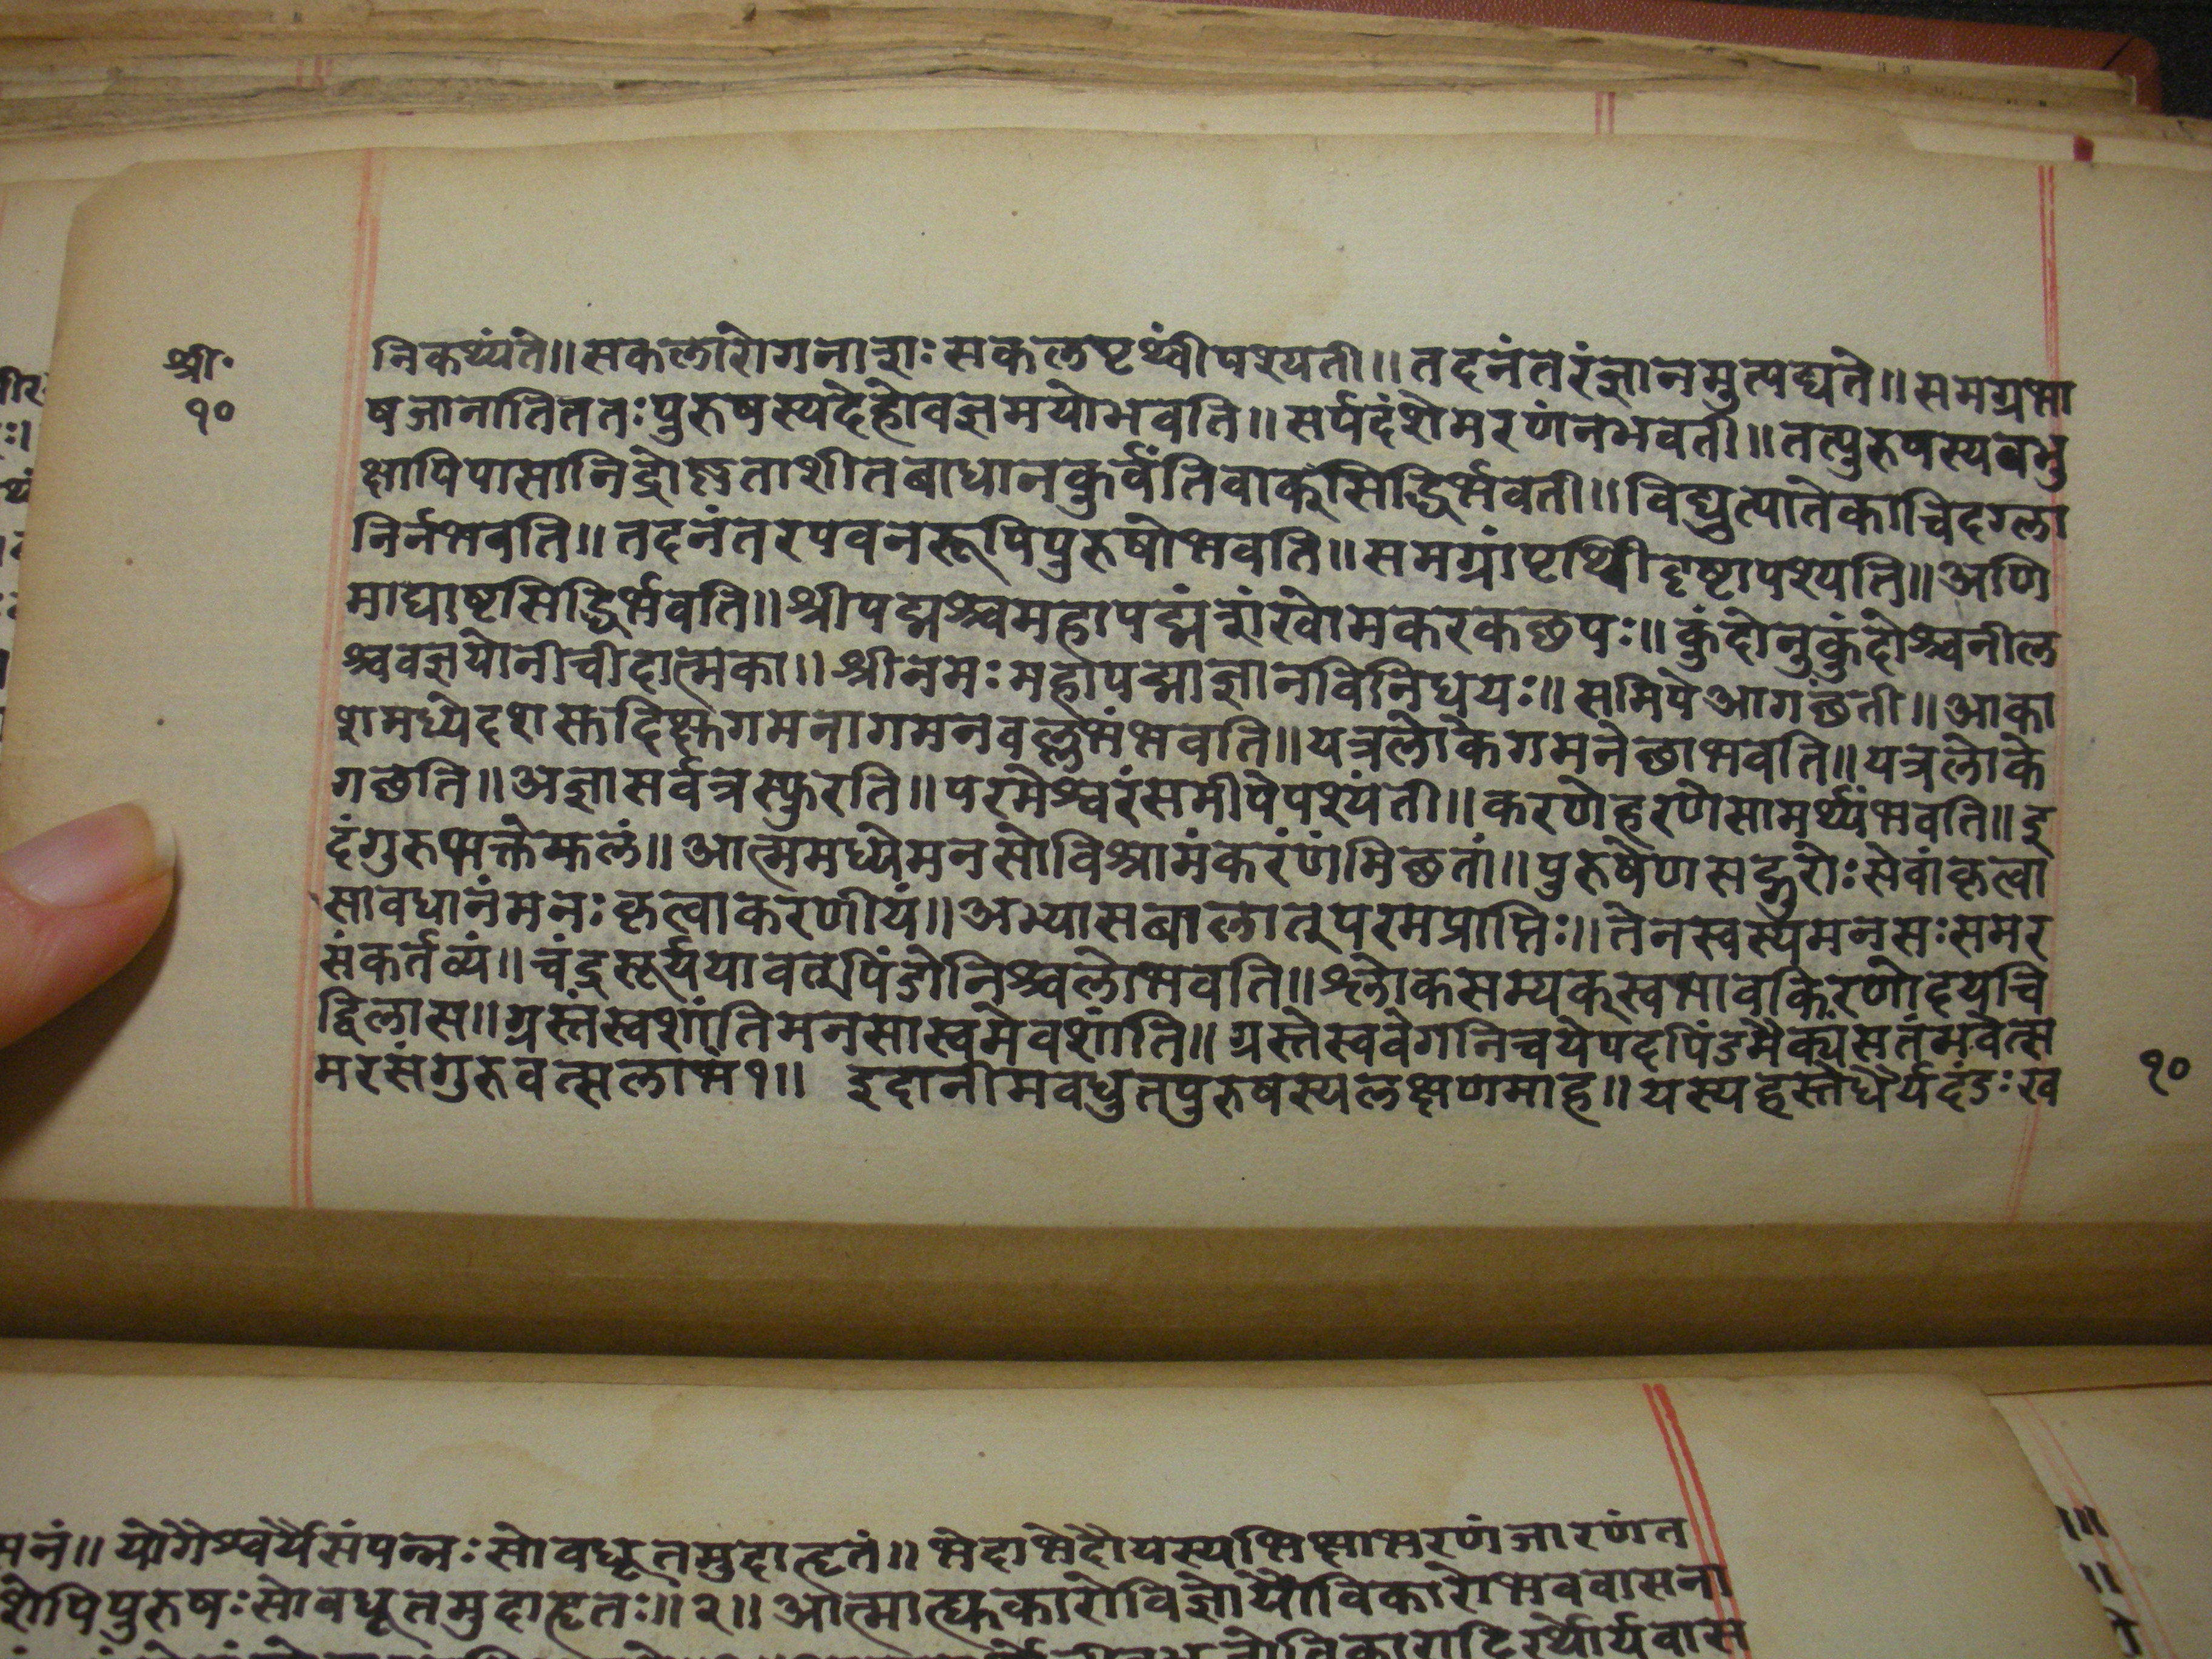 श्रीः
१०
निकथ्यंते॥सकलारोगनाशः सकलपृथ्वींपश्यती॥तदनंतरंज्ञानमुत्पद्यते॥समग्रभा
षजानातिततःपुरुषस्यदेहोवज्रमयोभवति॥सर्पदंशेमरणंनभवती॥तत्पुरुषस्यबभु
क्षापिपासानिद्रोष्णताशीतबाधानकुर्वंतिवाक्सिद्धिर्भवती॥विद्युत्पातेकाचिदग्ला
निर्नभवति॥तदनंतरपवनरूपिपुरुषोभवति॥समग्रांपृथ्वीदृष्टापश्यति॥अणि
माद्याष्टसिद्धिर्भवति॥श्रीपद्मश्चमहापद्मंशंखोमकरकछपः॥कुंदोनुकुंदोश्चनील
श्चवज्रयोनीचीदात्मका॥श्रीनमःमहापद्माज्ञानविनिधयः॥समिपेआगंछती॥आका
शमध्येदशस्तदिक्षुगमनागमनवल्लभंभवति॥यत्रलोकेगमनेछाभवति॥यत्रलोके
गछेति॥अज्ञासर्वत्रस्फुरति॥परमेश्वरंसमीपेपश्यंती॥करणेहरणेसामर्थ्यंभवति॥इ
दंगुरुभक्तेफलं॥आत्ममध्येमनसोविश्रामंकरंणंमिछतां॥पुरुषेणसद्गुरोःसेवांकृत्वा
सावधानंमनःकृत्वाकरणीयं॥अभ्यासबालातूपरमप्राप्तिः॥तेनस्वस्यमनसःसमर
संकर्तव्यं॥चंद्रसूर्ययावत्पिंडोनिश्चलोभवति॥श्लोकसम्यक्स्वभावकिरणोदयचि
द्विलास॥ग्रस्तंस्वशांतिमनसास्वमेवशांति॥ग्रस्तेस्ववेगनिचयेपदपिंडमैक्यंसतंभवेत्स
मरसंगुरुवत्सलाभं१॥ इदानीमवधुतपुरुषस्यलक्षणमाह॥यस्यहस्तेधैर्यदंडःख
१०
सनं॥योगैश्वर्यैसंपन्नःसोवधूतमुदाहृतं॥भेदाभेदौयस्यभिक्षाभरणंजारणंत
शेपिपुरुषःसोवधूतमुदाहृतः॥२॥आत्माह्यकारोविज्ञोयोविकारोभववासना